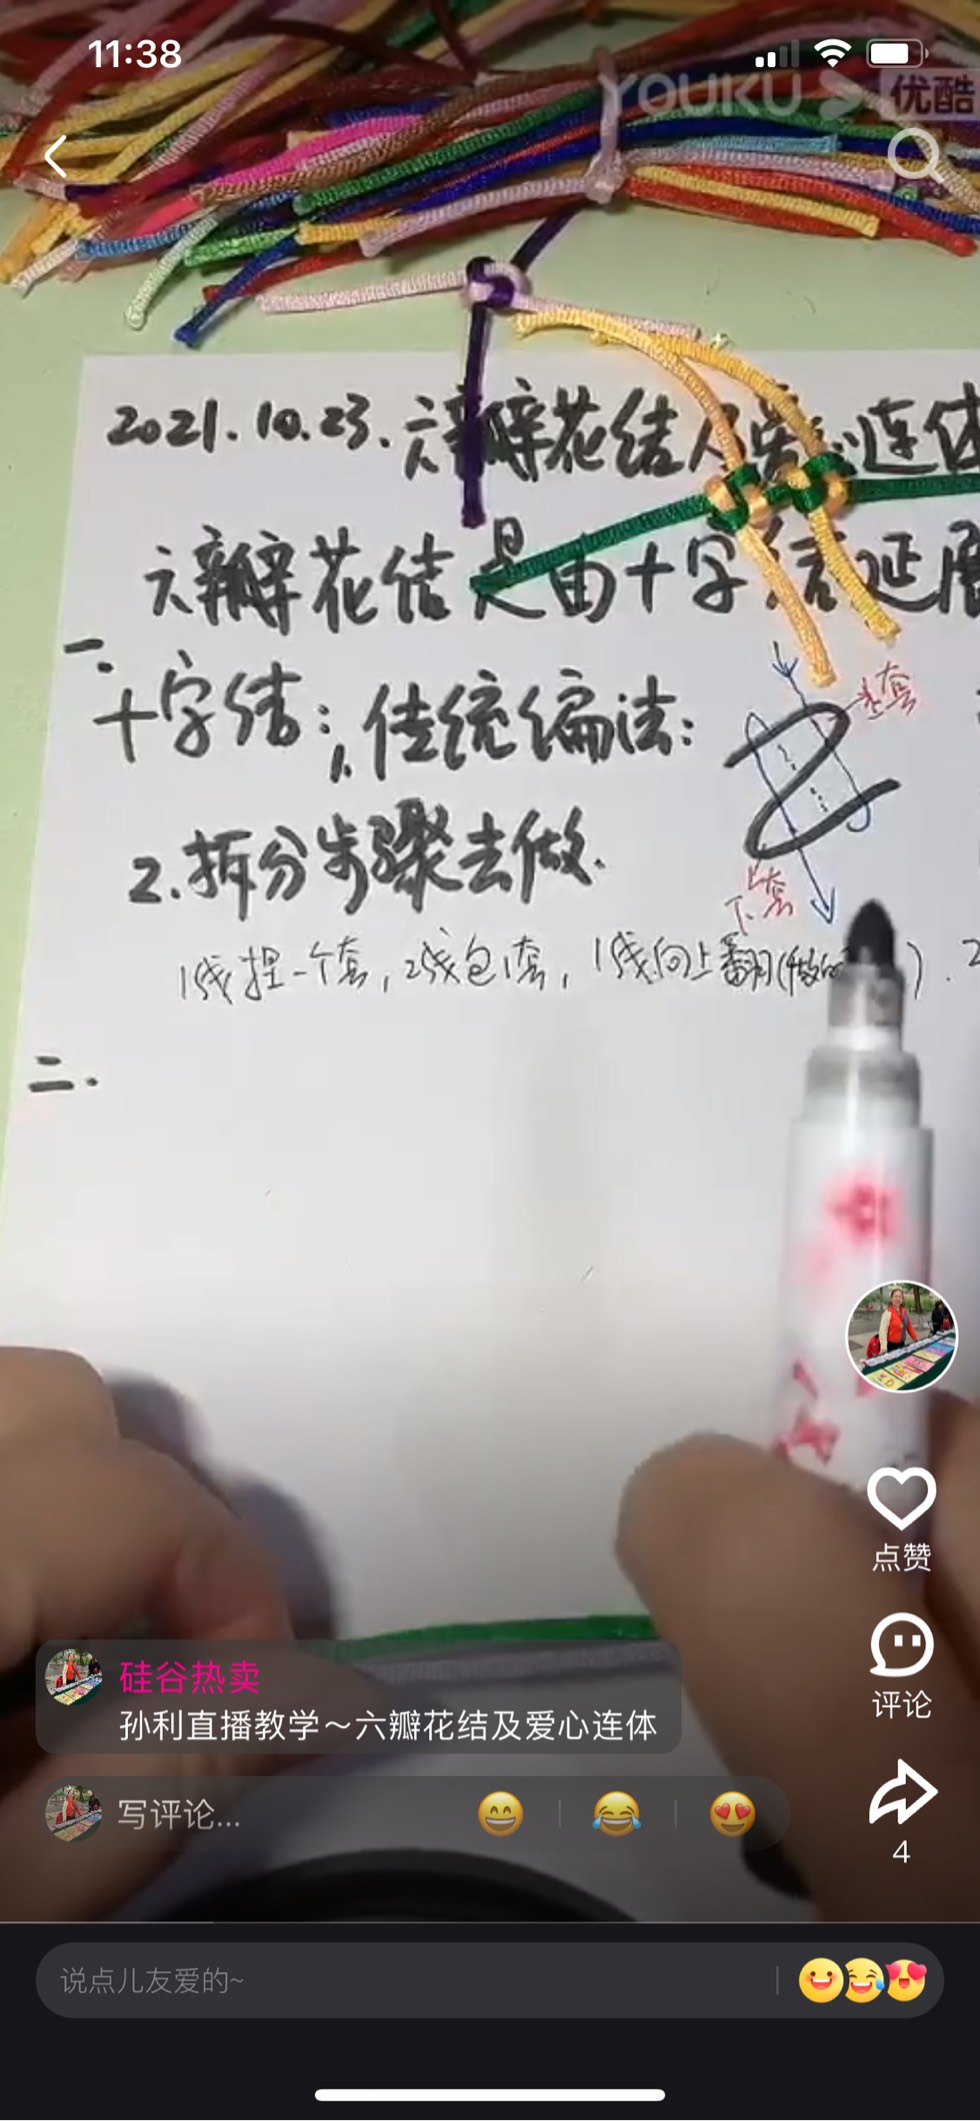 11:38
YOUKU 优酷
2021.10.23.六瓣花结及爱心连体
六瓣花结是由十字结延展
一.
十字结：1.传统编法：
上套
2.拆分步骤去做.
下套
1线捏一个套，2线包1套，1线向上翻(做的 ). 2
二.
点赞
硅谷热卖
孙利直播教学～六瓣花结及爱心连体
评论
写评论...
4
说点儿友爱的~